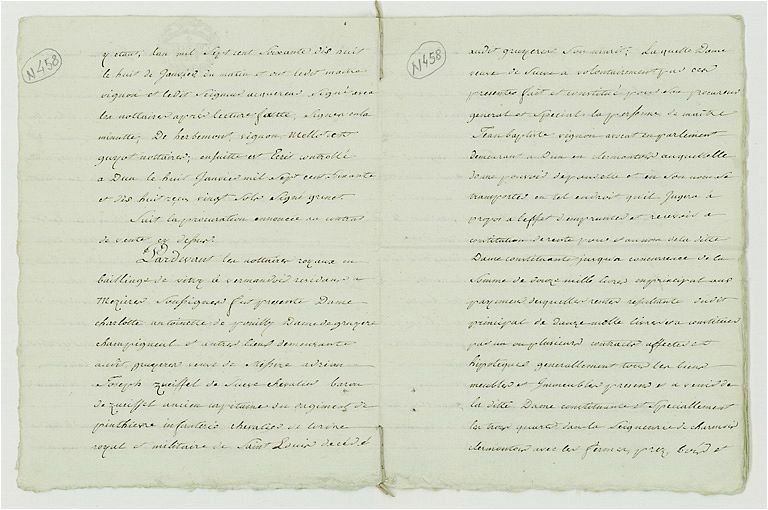 N458
y etant, lan mil sept cent soixante dis huit
le huit de Janvier du matin et ont ledit maitre
vignon et ledit Seigneur acquereur signé avec
les nottaires après lecture faitte, signer en la
minutte, De herbemont, vignon, Mellotette
guyot nottaires, ensuitte est Ecrit controllé
a Dun le huit Janvier mil sept cent soixante
et dis huit reçu vingt sols signé grinet.
Suit la procuration enoncée au contrat
de vente cy dessus.
Pardevant les nottaires royaux en
bailliage de vitry à vermandois residans a
Mezieres Soussignés fut presente Dame
charlotte antoinette de pouilly Dame de gruyere
champigneul et autres lieux demeurante
audit gruyeres veuve de Messire adrian
Joseph zueiffel de Sueve chevalier baron
de zueiffel ancien capitaine du regiment de
pinthievre infanterie chevalier de l'ordre
royal et militaire de Saint Louis decedé
N458
audit gruyeres son mari; Laquelle Dame
veuve de Sueve a volontairement par ces
presentes fait et constitué pour son procureur
general et special la personne de maitre
Jean baptiste vignon avocat en parlement
demeurant a Dun en clermontois auquel elle
donne pouvoir de pour elle et en son nom se
transporter en tel endroit qu'il Jugera à
propos a leffet d'emprunter et recevoir a
constitution de rente pour et au nom de la ditte
Dame constituante jusqu'a concurrence de la
Somme de douze mille livres en principal aux
payemens desquelles rentes resultante dudit
principal de douze mille livres sera constituée
par un ou plusieurs contracts affectés et
hypotequés generallement tous les biens
meubles et Immeubles presens et a venir de
la ditte Dame constituante et specialement
les trois quarts dans la Seigneurie de charmois
clermontois avec les fermes, prez, bois et